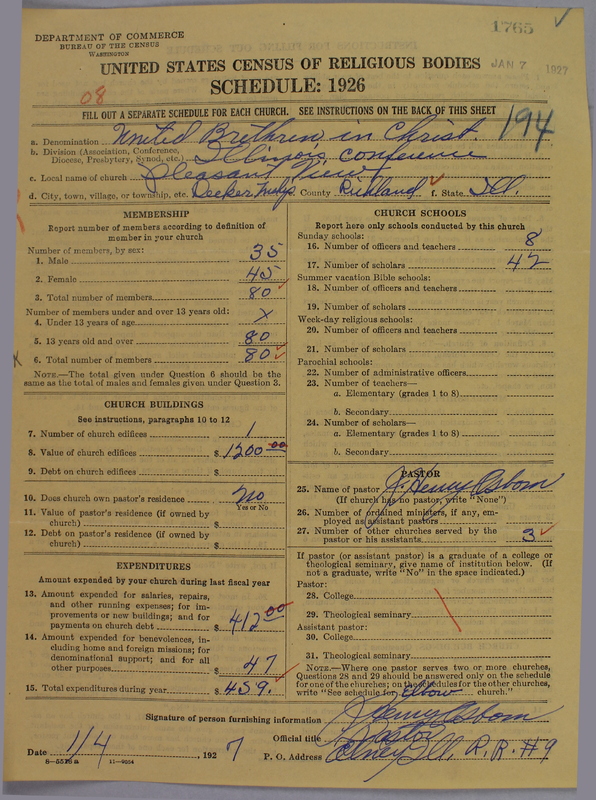 1765
DEPARTMENT OF COMMERCE
BUREAU OF THE CENSUS
WASHINGTON
JAN 7 1927
UNITED STATES CENSUS OF RELIGIOUS BODIES
SCHEDULE: 1926
08
FILL OUT A SEPARATE SCHEDULE FOR EACH CHURCH. SEE INSTRUCTIONS ON THE BACK OF THIS SHEET
194
a. Denomination United Brethren in Christ.
b. Division (Association, Conference, Diocese, Presbytery, Synod, etc.) Illinois, Conference
c. Local name of church Pleasant View
d. City, town, village, or township, etc. Decker Twp. County Richland f. State Ill.
MEMBERSHIP
Report number of members according to definition of member in your church
Number of members, by sex:
1. Male 35
2. Female 45
3. Total number of members 80
Number of members under and over 13 years old:
4. Under 13 years of age X
5. 13 years old and over 80
6. Total number of members 80
NOTE.—The total given under Question 6 should be the same as the total of males and females given under Question 3.
CHURCH BUILDINGS
See instructions, paragraphs 10 to 12
7. Number of church edifices 1
8. Value of church edifices $ 1200.00
9. Debt on church edifices $
10. Does church own pastor's residence No
Yes or No
11. Value of pastor's residence (if owned by church) $
12. Debt on pastor's residence (if owned by church) $
EXPENDITURES
Amount expended by your church during last fiscal year
13. Amount expended for salaries, repairs, and other running expenses; for improvements or new buildings; and for payments on church debt $ 412.00
14. Amount expended for benevolences, including home and foreign missions; for denominational support; and for all other purposes $ 47
15. Total expenditures during year $ 459.
CHURCH SCHOOLS
Report here only schools conducted by this church
Sunday schools:
16. Number of officers and teachers 8
17. Number of scholars 42
Summer vacation Bible schools:
18. Number of officers and teachers
19. Number of scholars
Week-day religious schools:
20. Number of officers and teachers
21. Number of scholars
Parochial schools:
22. Number of administrative officers
23. Number of teachers—
a. Elementary (grades 1 to 8)
b. Secondary
24. Number of scholars—
a. Elementary (grades 1 to 8)
b. Secondary
PASTOR
25. Name of pastor J. Henry Osborn
(If church has no pastor, write "None")
26. Number of ordained ministers, if any, employed as assistant pastors
27. Number of other churches served by the pastor or his assistants 3
If pastor (or assistant pastor) is a graduate of a college or theological seminary, give name of institution below. (If not a graduate, write "No" in the space indicated.)
Pastor:
28. College
29. Theological seminary
Assistant pastor:
30. College
31. Theological seminary
NOTE.—Where one pastor serves two or more churches, Questions 28 and 29 should be answered only on the schedule for one of the churches; on the schedules for the other churches, write "See schedule for Elbow church."
Signature of person furnishing information J Henry Osborn
Official title Pastor
Date 1/4 1927
P. O. Address Olney Ill. R. R. #9
8—5526 a 11—9004